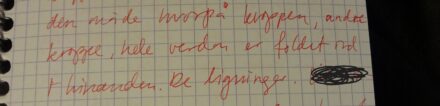 den måde hvorpå kroppen, andre
kroppe, hele verden er foldet ind
i hinanden. De ligninger.